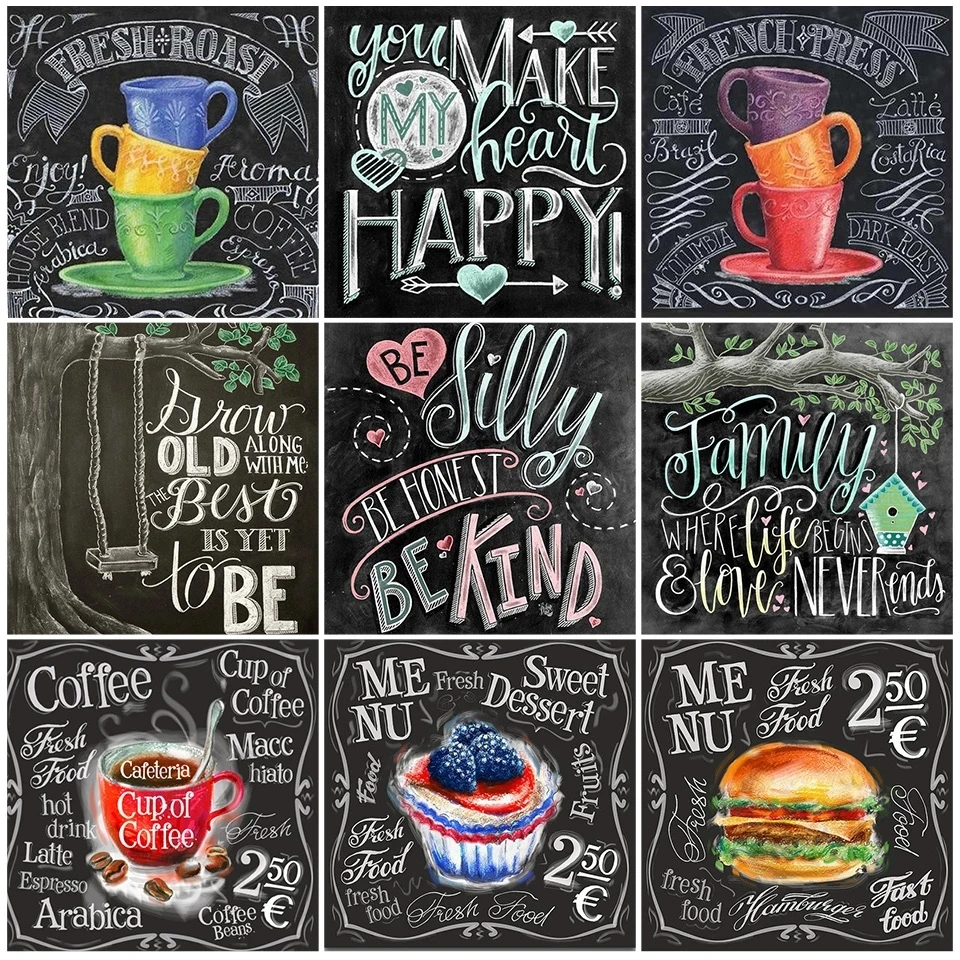 FRESH ROAST
Enjoy!
Aroma!
HOUSE BLEND
Arabica
COFFEE
you MAKE
MY heart
HAPPY!
FRENCH PRESS
Café
Latté
Brazil
Costa Rica
DARK ROAST
Grow
OLD ALONG
WITH Me
THE
Best
IS YET
to BE
BE Silly
BE HONEST
BE KIND
Family
WHERE life BEGINS
& love NEVER ends
Coffee
Cup of
Coffee
Fresh
Food
Macc
hiato
Cafeteria
Cup of
Coffee
hot
drink
Fresh
Latte
Espresso
Arabica
2 50
€
Coffee
Beans
ME
NU
Fresh
Sweet
Dessert
Food
Fruits
Fresh
Food
fresh
food
Fresh Food
2 50
€
ME
NU
Fresh
Food
2 50
€
Fresh
Food
fresh
food
Hamburger
Fast
food